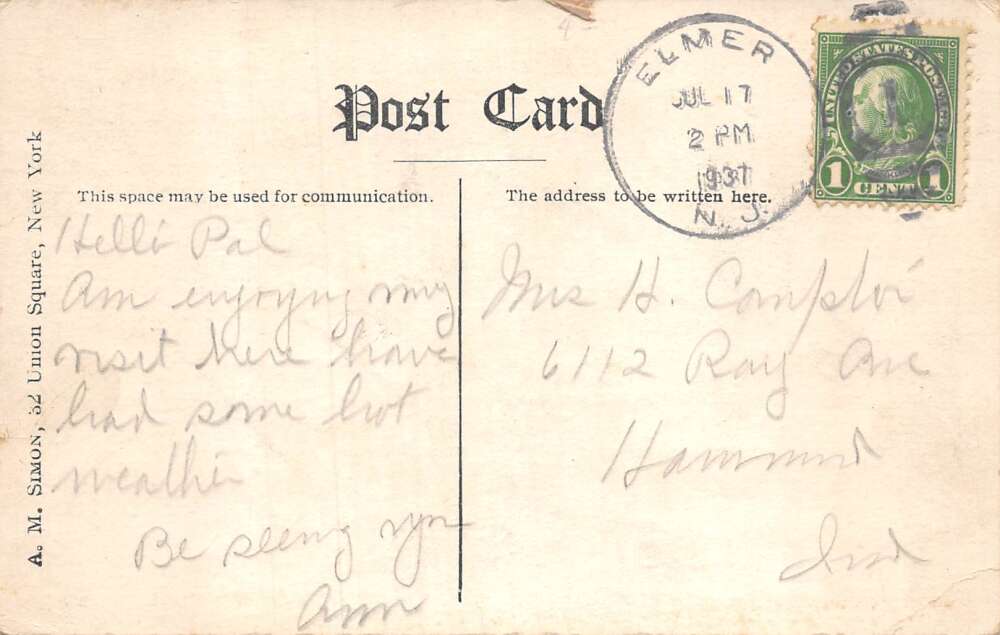 Post Card
ELMER
JUL 17
2 PM
1937
N. J.
UNITED STATES POSTAGE
FRANKLIN
1 CENT 1
A. M. SIMON, 32 Union Square, New York
This space may be used for communication.
The address to be written here.
Hello Pal
Am enjoying my
visit here have
had some hot
weather
Be seeing you
Ann
Mrs H. Compton
6112 Ray Ave
Hammond
Ind